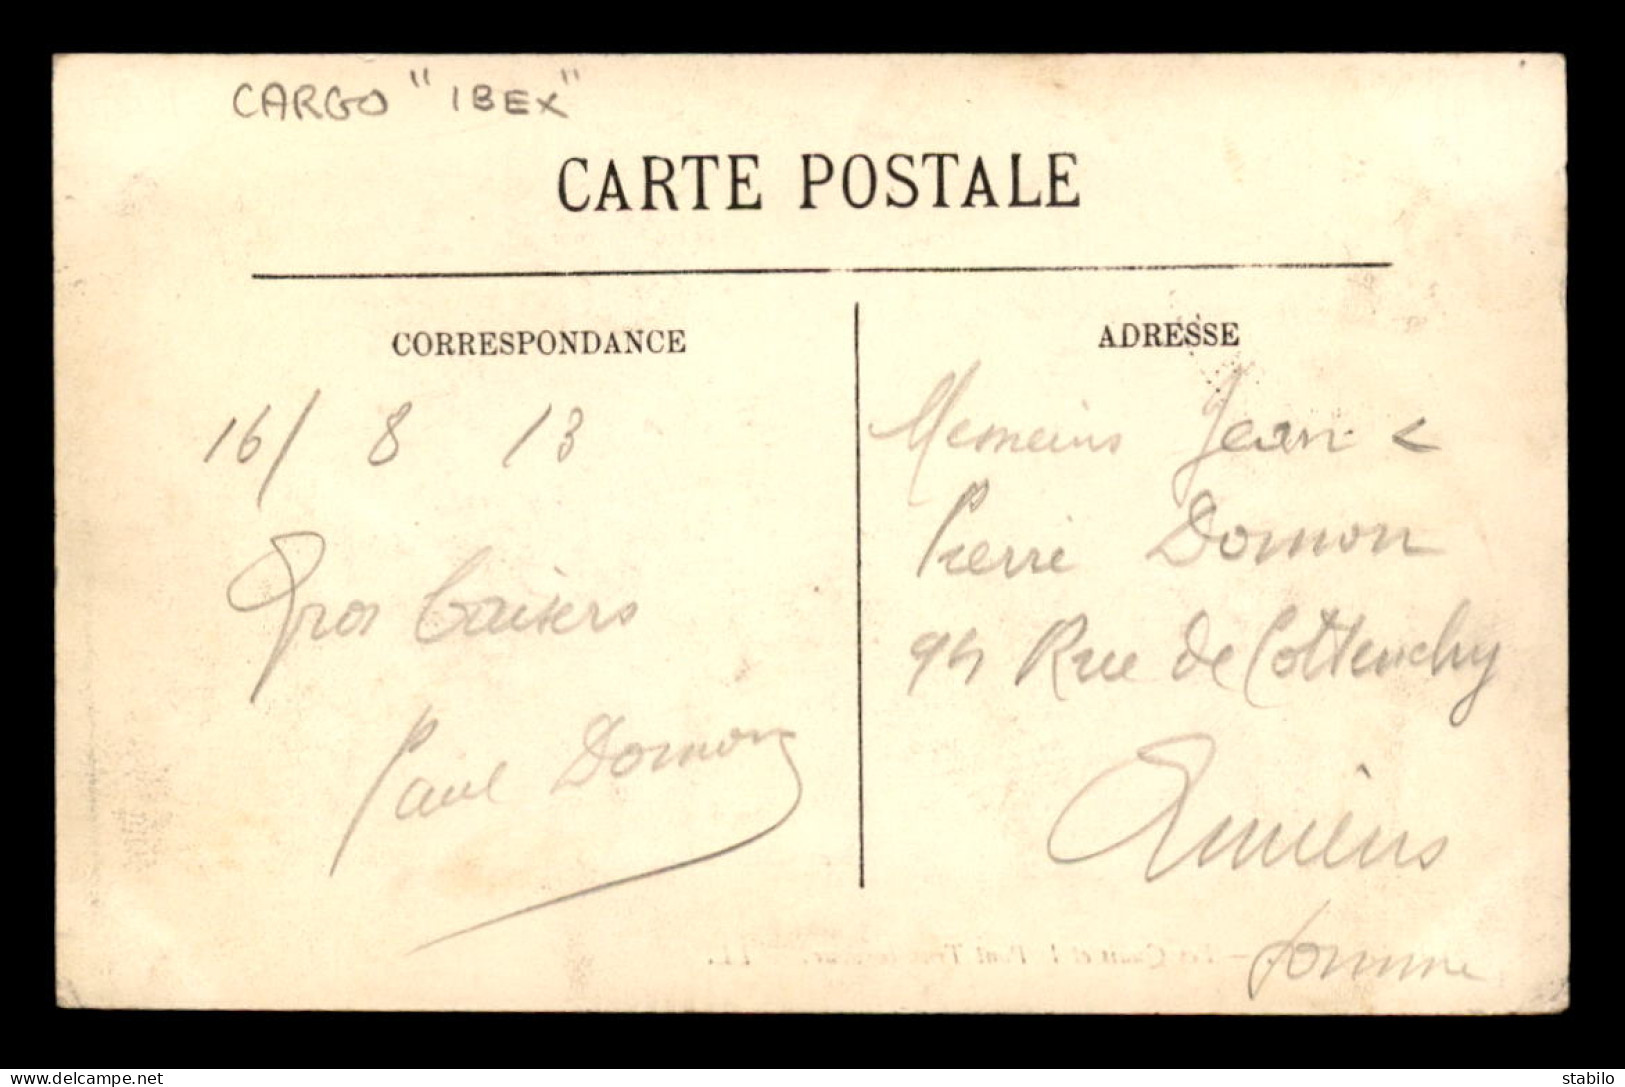 CARGO "IBEX"
CARTE POSTALE
CORRESPONDANCE
16/ 8 13
Gros baisers
Paul Domon
ADRESSE
Messieurs Jean &
Pierre Domon
94 Rue de Cottenchy
Amiens
Somme
Delcampe.net
stabilo